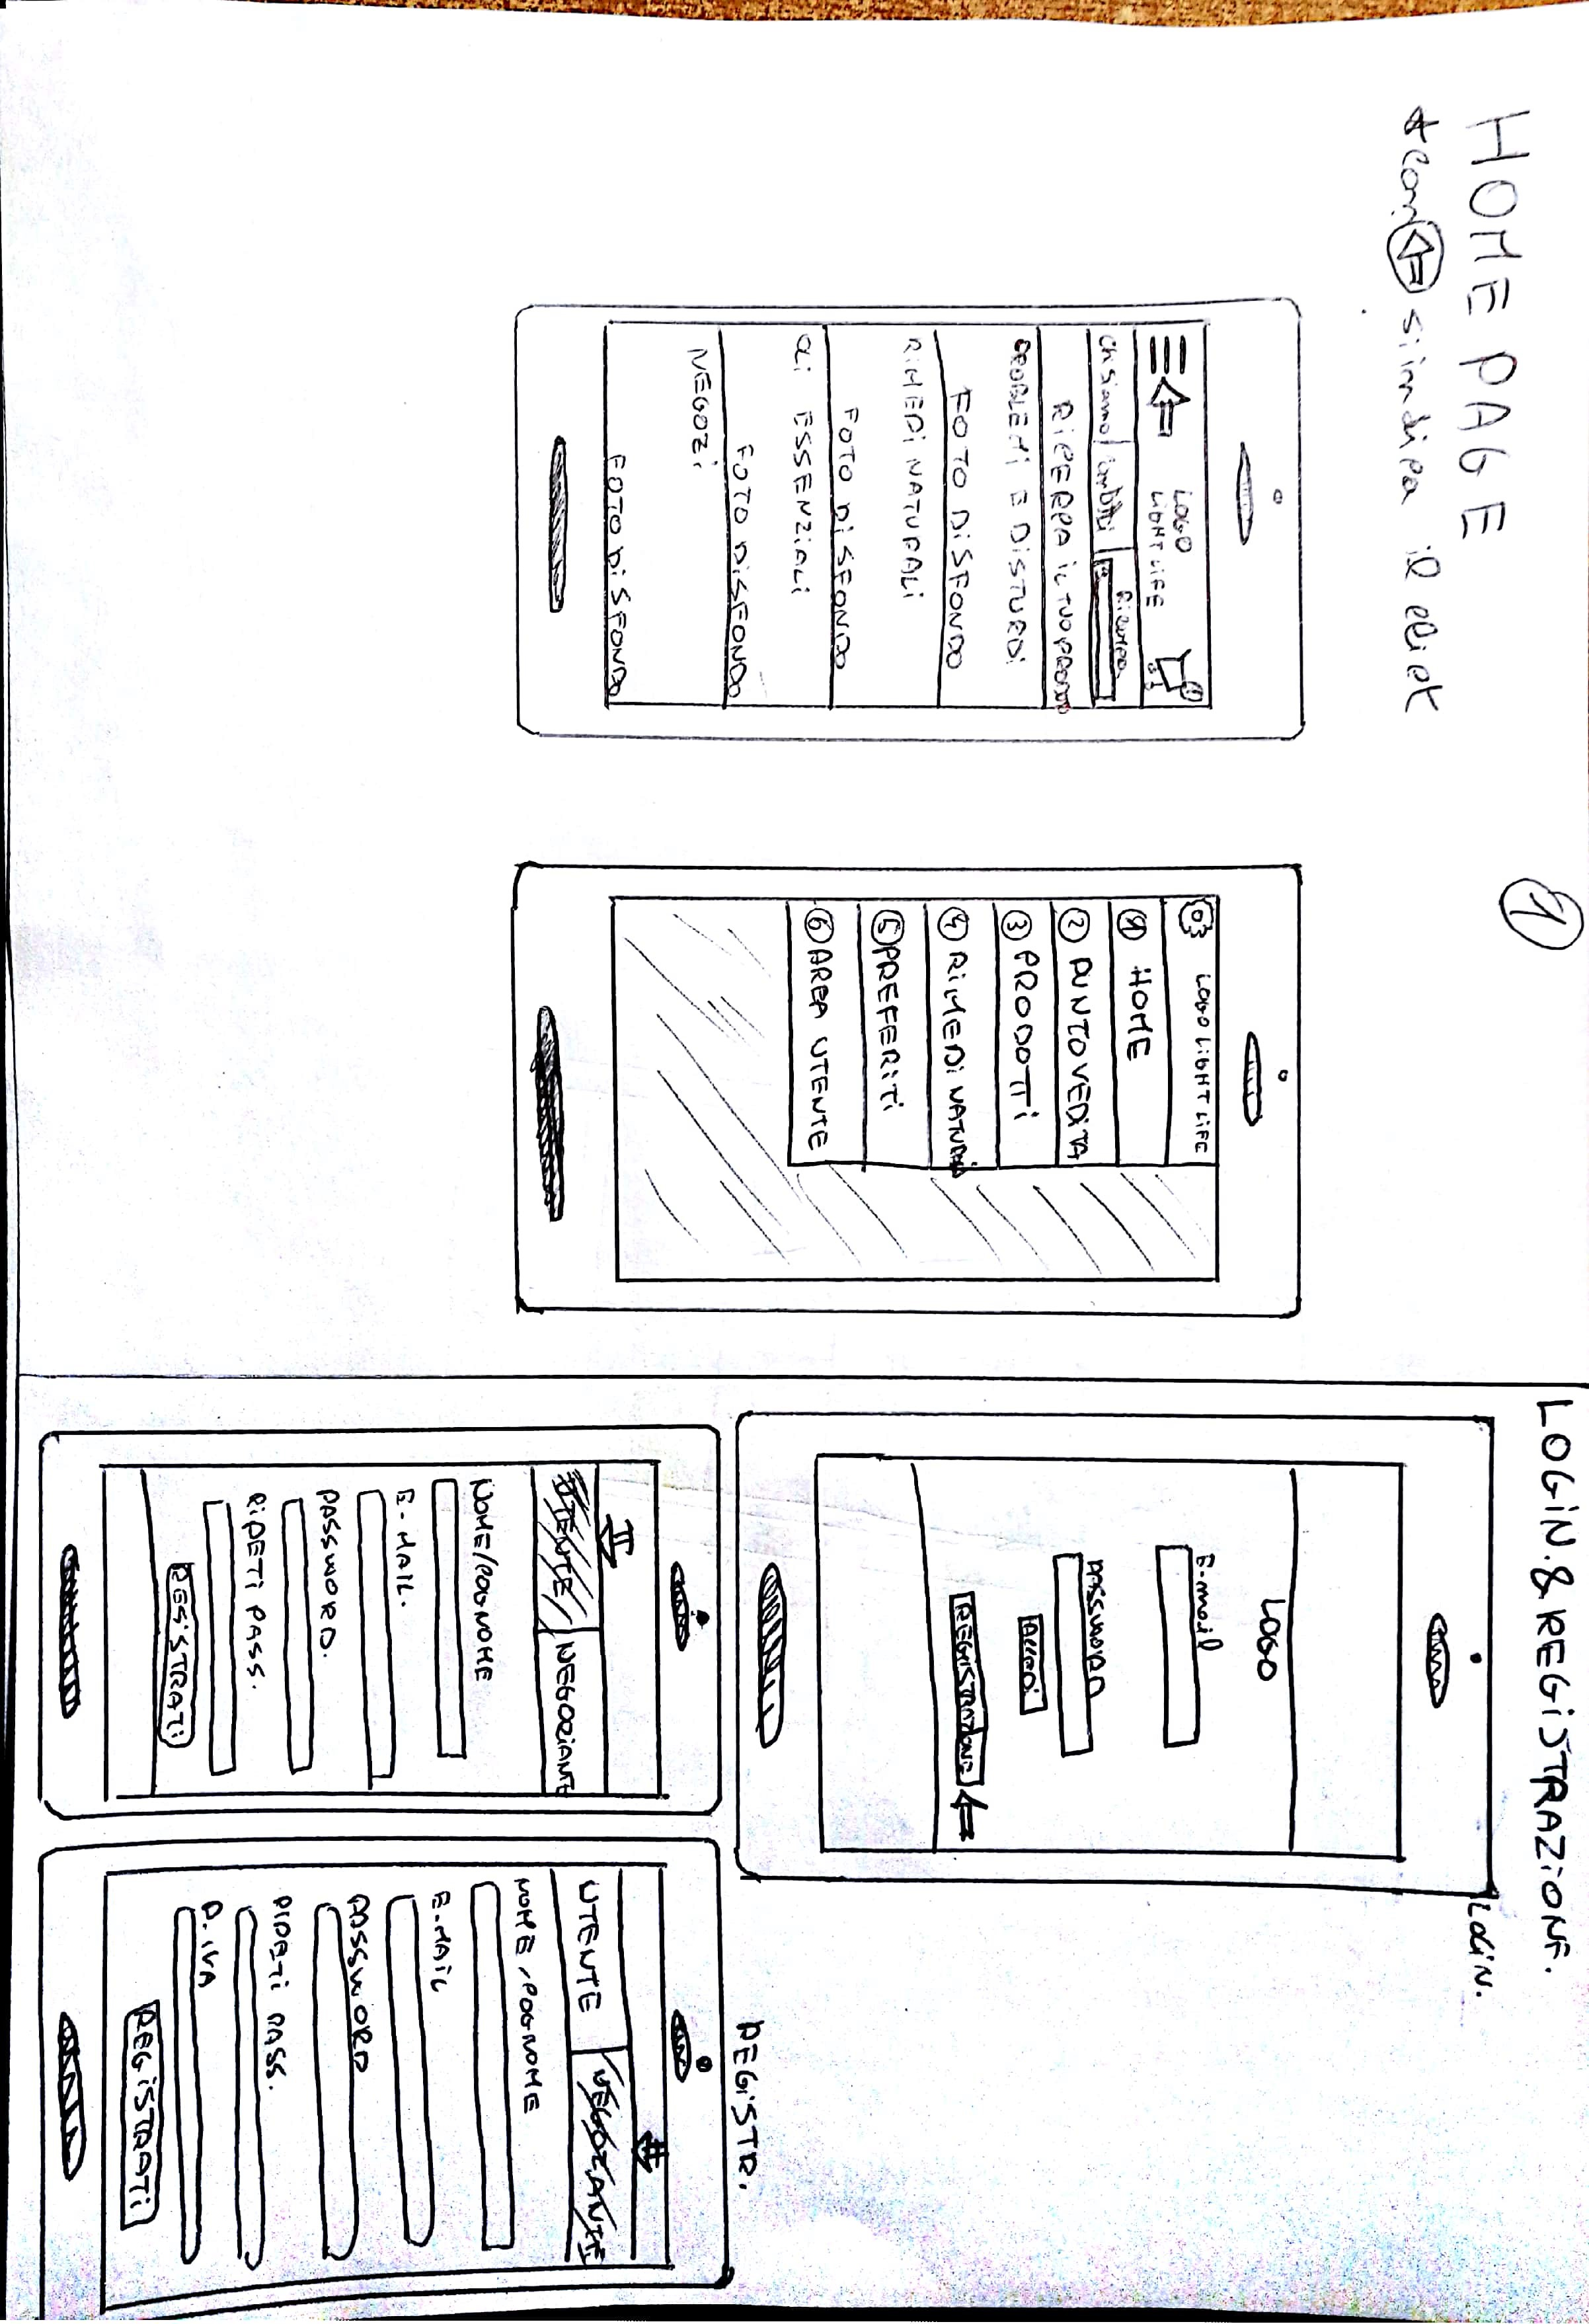 HOME PAGE
* con ⇐ si indica il click
1
LOGO
LIGHT LIFE
Chi siamo
Ricerca
RICERCA IL TUO PRODOTTO
PROBLEMI E DISTURBI
FOTO DI SFONDO
RIMEDI NATURALI
FOTO DI SFONDO
OLI ESSENZIALI
FOTO DI SFONDO
NEGOZI
FOTO DI SFONDO
LOGO LIGHT LIFE
1 HOME
2 PUNTO VEDITA
3 PRODOTTI
4 RIMEDI NATURALI
5 PREFERITI
6 AREA UTENTE
LOGIN.&REGISTRAZIONE.
LOGIN.
LOGO
E-mail
PASSWORD
Accedi
REGISTRAZIONE
REGISTR.
UTENTE NEGOZIANTE
NOME/COGNOME
E-MAIL.
PASSWORD.
RIPETI PASS.
REGISTRATI
UTENTE NEGOZIANTE
NOME/COGNOME
E-MAIL
PASSWORD
RIPETI PASS.
P.IVA
REGISTRATI